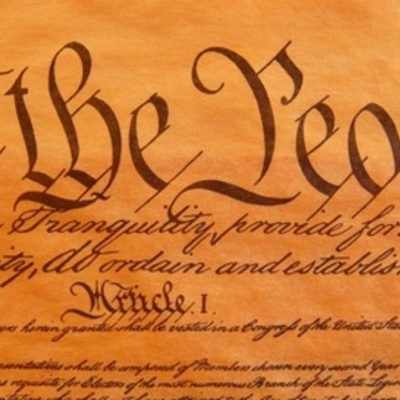 the Peo
Tranquility, provide for
ty, do ordain and establis
Article. I.
herein granted shall be vested in a Congress of the United Sta
resentatives shall be composed of Members chosen every second Year
requisite for Electors of the most numerous Branch of the State Legis